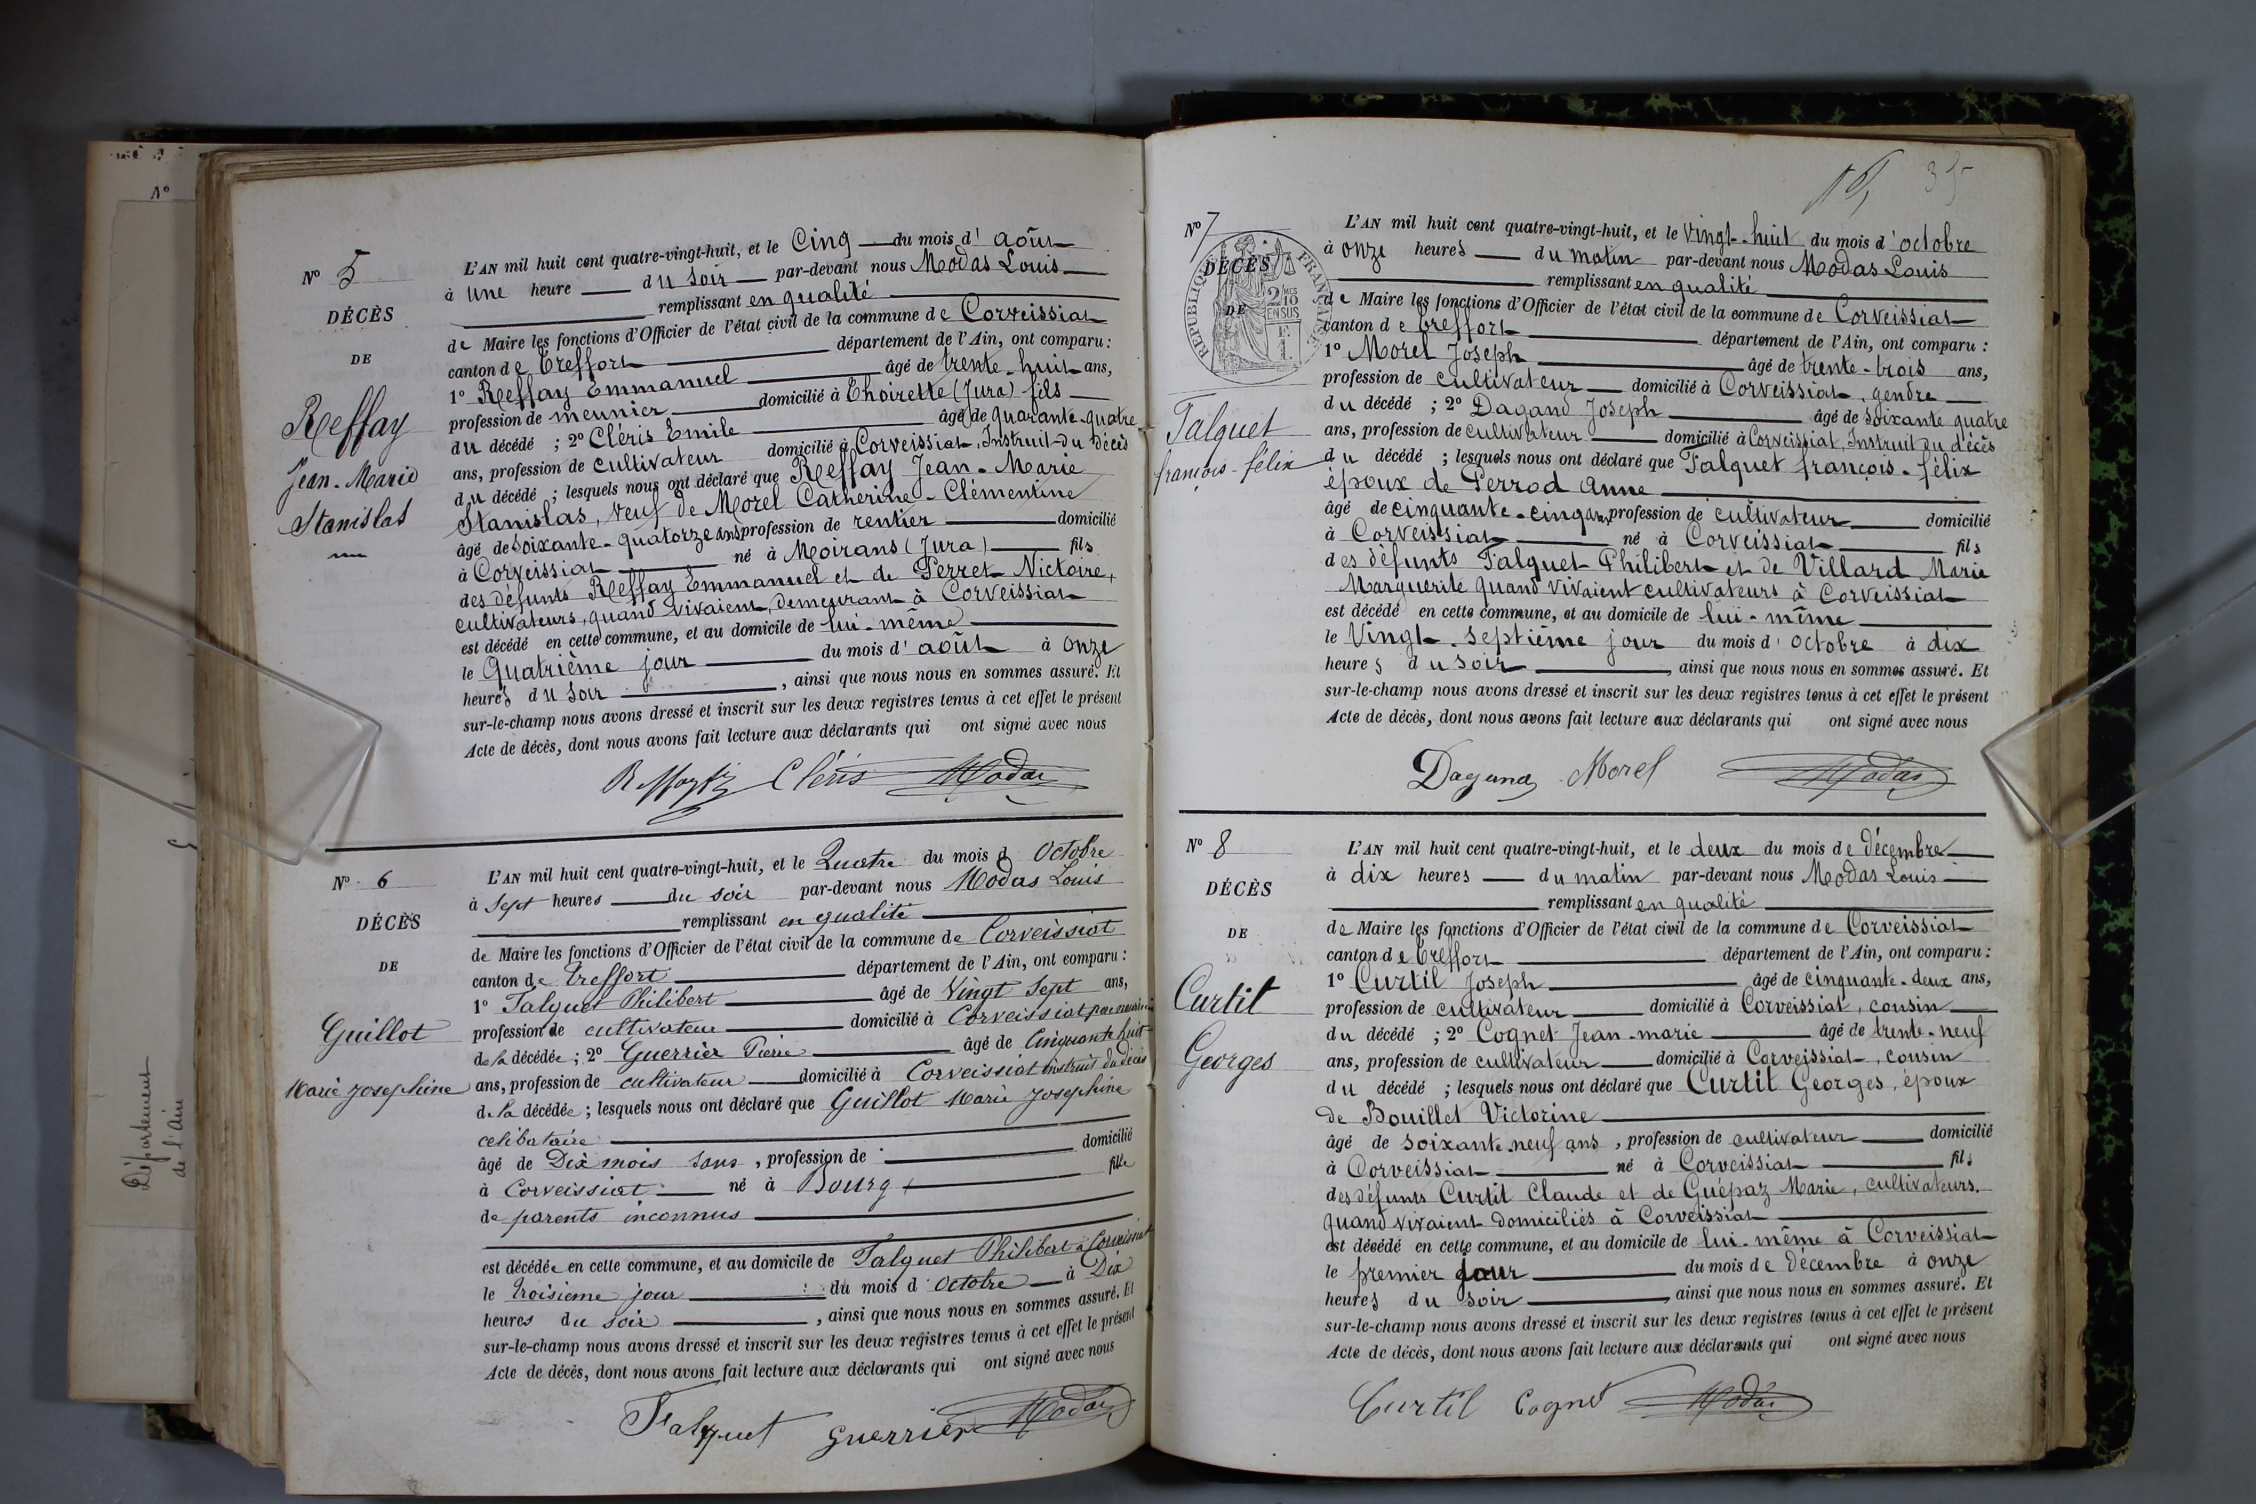 Nº 5
DÉCÈS
DE
Reffay
Jean-Marie
Stanislas
L'AN mil huit cent quatre-vingt-huit, et le Cinq du mois d'août
à une heure du soir par-devant nous Modas Louis
remplissant en qualité
de Maire les fonctions d'Officier de l'état civil de la commune de Corveissiat
canton de Treffort département de l'Ain, ont comparu :
1º Reffay Emmanuel âgé de trente-huit ans,
profession de meunier domicilié à Thoirette (Jura) fils
du décédé ; 2º Cléris Emile âgé de quarante-quatre
ans, profession de cultivateur domicilié à Corveissiat, Instruit du décès
du décédé ; lesquels nous ont déclaré que Reffay Jean-Marie
Stanislas, veuf de Morel Catherine-Clémentine
âgé de soixante-quatorze ans profession de rentier domicilié
à Corveissiat né à Moirans (Jura) fils
des défunts Reffay Emmanuel et de Perret Victoire,
cultivateurs, quand vivaient, demeurant à Corveissiat
est décédé en cette commune, et au domicile de lui-même
le Quatrième jour du mois d'août à onze
heures du soir , ainsi que nous nous en sommes assuré. Et
sur-le-champ nous avons dressé et inscrit sur les deux registres tenus à cet effet le présent
Acte de décès, dont nous avons fait lecture aux déclarants qui ont signé avec nous
Cléris Modas
Nº 6
DÉCÈS
DE
Guillot
Marie Josephine
L'AN mil huit cent quatre-vingt-huit, et le Quatre du mois d Octobre
à sept heures du soir par-devant nous Modas Louis
remplissant en qualité
de Maire les fonctions d'Officier de l'état civil de la commune de Corveissiat
canton de Treffort département de l'Ain, ont comparu :
1º Falquet Philibert âgé de Vingt Sept ans,
profession de cultivateur domicilié à Corveissiat
de la décédée ; 2º Guerrier Pierre âgé de Cinquante huit
ans, profession de cultivateur domicilié à Corveissiat instruit du décès
de la décédée ; lesquels nous ont déclaré que Guillot Marie Josephine
celibataire
âgé de Dix mois sans , profession de domicilié
à Corveissiat né à Bourg fille
de parents inconnus
est décédée en cette commune, et au domicile de Falquet Philibert à Corveissiat
le troisieme jour du mois d'octobre à Dix
heures du soir , ainsi que nous nous en sommes assuré. Et
sur-le-champ nous avons dressé et inscrit sur les deux registres tenus à cet effet le présent
Acte de décès, dont nous avons fait lecture aux déclarants qui ont signé avec nous
Falquet Guerrier Modas
Département
de l'Ain
35
Nº 7
DÉCÈS
DE
RÉPUBLIQUE FRANÇAISE
2/10 EN SUS
Falquet
françois-félix
L'AN mil huit cent quatre-vingt-huit, et le vingt-huit du mois d'octobre
à onze heures du matin par-devant nous Modas Louis
remplissant en qualité
de Maire les fonctions d'Officier de l'état civil de la commune de Corveissiat
canton de Treffort département de l'Ain, ont comparu :
1º Morel Joseph âgé de trente-trois ans,
profession de cultivateur domicilié à Corveissiat, gendre
du décédé ; 2º Dagand Joseph âgé de soixante quatre
ans, profession de cultivateur domicilié à Corveissiat, Instruit du décès
du décédé ; lesquels nous ont déclaré que Falquet françois-félix
époux de Perrod Anne
âgé de cinquante-cinq ans, profession de cultivateur domicilié
à Corveissiat né à Corveissiat fils
des défunts Falquet Philibert et de Villard Marie
Marguerite quand vivaient cultivateurs à Corveissiat
est décédé en cette commune, et au domicile de lui-même
le Vingt-septième jour du mois d'octobre à dix
heures du soir , ainsi que nous nous en sommes assuré. Et
sur-le-champ nous avons dressé et inscrit sur les deux registres tenus à cet effet le présent
Acte de décès, dont nous avons fait lecture aux déclarants qui ont signé avec nous
Dagand Morel Modas
Nº 8
DÉCÈS
DE
Curtit
Georges
L'AN mil huit cent quatre-vingt-huit, et le deux du mois de décembre
à dix heures du matin par-devant nous Modas Louis
remplissant en qualité
de Maire les fonctions d'Officier de l'état civil de la commune de Corveissiat
canton de Treffort département de l'Ain, ont comparu :
1º Curtil Joseph âgé de cinquante-deux ans,
profession de cultivateur domicilié à Corveissiat, cousin
du décédé ; 2º Cognet Jean-marie âgé de trente-neuf
ans, profession de cultivateur domicilié à Corveissiat, cousin
du décédé ; lesquels nous ont déclaré que Curtil Georges, époux
de Bouillet Victorine
âgé de soixante-neuf ans , profession de cultivateur domicilié
à Corveissiat né à Corveissiat fils
des défunts Curtil Claude et de Guépaz Marie, cultivateurs,
quand vivaient domiciliés à Corveissiat
est décédé en cette commune, et au domicile de lui-même à Corveissiat
le premier jour du mois de décembre à onze
heures du soir , ainsi que nous nous en sommes assuré. Et
sur-le-champ nous avons dressé et inscrit sur les deux registres tenus à cet effet le présent
Acte de décès, dont nous avons fait lecture aux déclarants qui ont signé avec nous
Curtil Cognet Modas